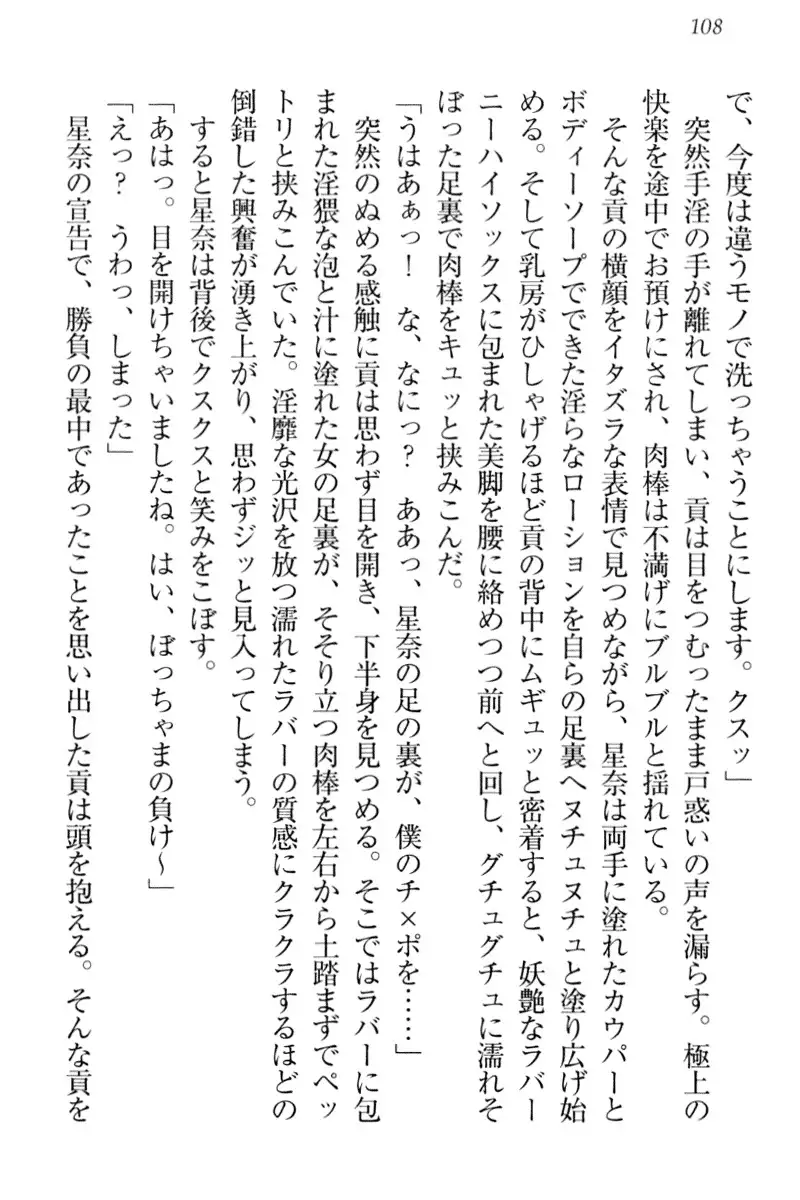 108
で、今度は違うモノで洗っちゃうことにします。クスッ」
突然手淫の手が離れてしまい、貢は目をつむったまま戸惑いの声を漏らす。極上の
快楽を途中でお預けにされ、肉棒は不満げにブルブルと揺れている。
そんな貢の横顔をイタズラな表情で見つめながら、星奈は両手に塗れたカウパーと
ボディーソープでできた淫らなローションを自らの足裏へヌチュヌチュと塗り広げ始
める。そして乳房がひしゃげるほど貢の背中にムギュッと密着すると、妖艶なラバー
ニーハイソックスに包まれた美脚を腰に絡めつつ前へと回し、グチュグチュに濡れそ
ぼった足裏で肉棒をキュッと挟みこんだ。
「うはあぁっ！　な、なにっ？　ああっ、星奈の足の裏が、僕のチ×ポを……」
突然のぬめる感触に貢は思わず目を開き、下半身を見つめる。そこではラバーに包
まれた淫猥な泡と汁に塗れた女の足裏が、そそり立つ肉棒を左右から土踏まずでペッ
トリと挟みこんでいた。淫靡な光沢を放つ濡れたラバーの質感にクラクラするほどの
倒錯した興奮が湧き上がり、思わずジッと見入ってしまう。
すると星奈は背後でクスクスと笑みをこぼす。
「あはっ。目を開けちゃいましたね。はい、ぼっちゃまの負け～」
「えっ？　うわっ、しまった」
星奈の宣告で、勝負の最中であったことを思い出した貢は頭を抱える。そんな貢を